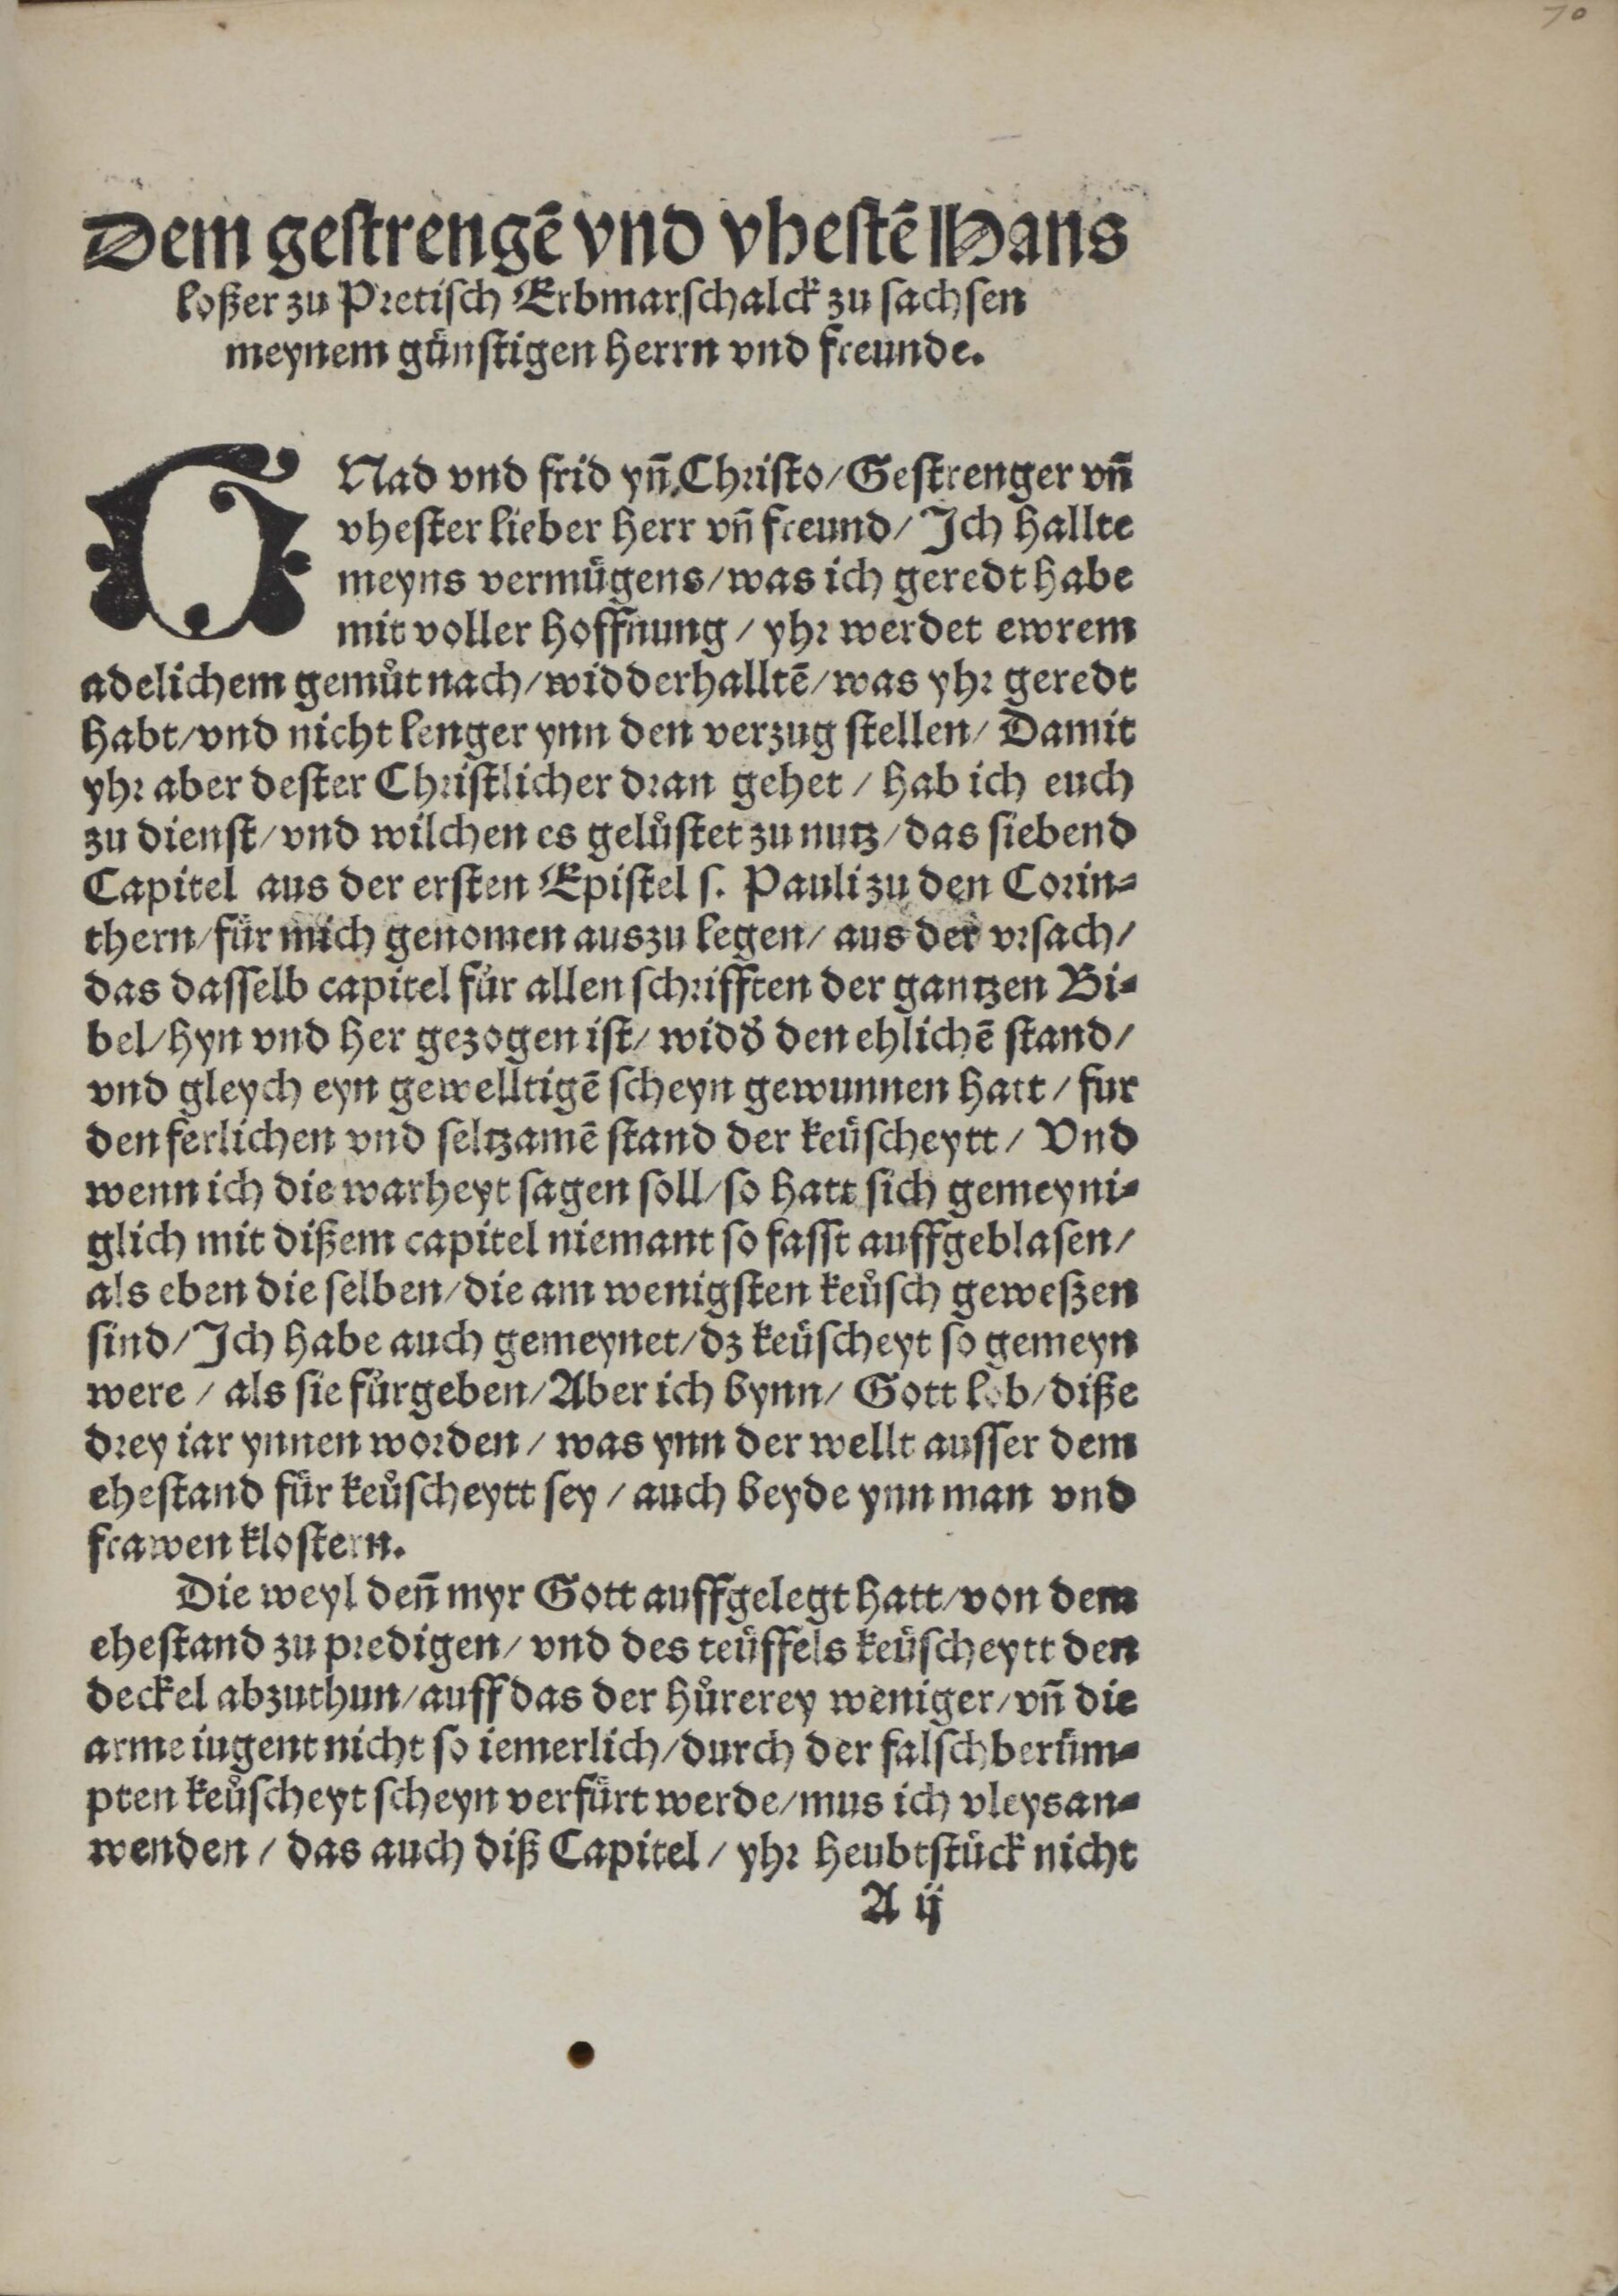 70
Dem gestrengē vnd vhestē Hans
loßer zu Pretisch Erbmarschalck zu sachsen
meynem günstigen herrn vnd freunde.
GNad vnd frid yñ Christo/ Gestrenger vñ
vhester lieber herr vñ freund/ Ich hallte
meyns vermügens/ was ich geredt habe
mit voller hoffnung / yhr werdet ewrem
adelichem gemůt nach/ widderhalltē/ was yhr geredt
habt/ vnd nicht lenger ynn den verzug stellen/ Damit
yhr aber dester Christlicher dran gehet / hab ich euch
zu dienst/ vnd wilchen es gelůstet zu nutz/ das siebend
Capitel aus der ersten Epistel s. Pauli zu den Corin-
thern/ für mich genomen auszu legen/ aus der vrsach/
das dasselb capitel für allen schrifften der gantzen Bi-
bel/ hyn vnd her gezogen ist/ widd̕ den ehlichē stand/
vnd gleych eyn gewelltigē scheyn gewunnen hatt / fur
den ferlichen vnd seltzamē stand der keüscheytt / Vnd
wenn ich die warheyt sagen soll/ so hatt sich gemeyni-
glich mit dißem capitel niemant so fasst auffgeblasen/
als eben die selben/ die am wenigsten keůsch geweßen
sind/ Ich habe auch gemeynet/ dz keüscheyt so gemeyn
were / als sie fůrgeben/ Aber ich bynn/ Gott lob/ diße
drey iar ynnen worden / was ynn der wellt ausser dem
ehestand für keůscheytt sey / auch beyde ynn man vnd
frawen klostern.
Die weyl deñ myr Gott auffgelegt hatt/ von dem
ehestand zu predigen/ vnd des teüffels keüscheytt den
deckel abzuthun/ auff das der hůrerey weniger/ vñ die
arme iugent nicht so iemerlich/ durch der falsch berüm-
pten keůscheyt scheyn verfürt werde/ mus ich vleys an-
wenden / das auch diß Capitel / yhr heubtstůck nicht
A ij